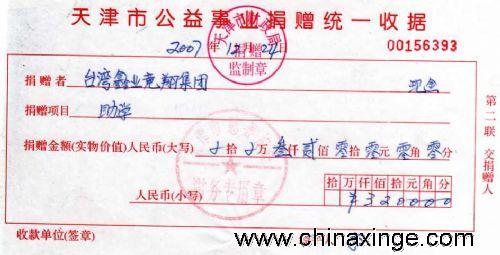 天津市公益事业捐赠统一收据
2007年12月24日
00156393
捐赠
监制章
捐赠者 台湾鑫业竞翔集团 现金
捐赠项目 助学
捐赠金额(实物价值)人民币(大写) 拾 万 叁仟 贰佰 零拾 零元 零角 零分
财务专用章
拾万仟佰拾元角分
人民币(小写) ¥320000
收款单位(签章)
第二联 交捐赠人
www.chinaxinge.com